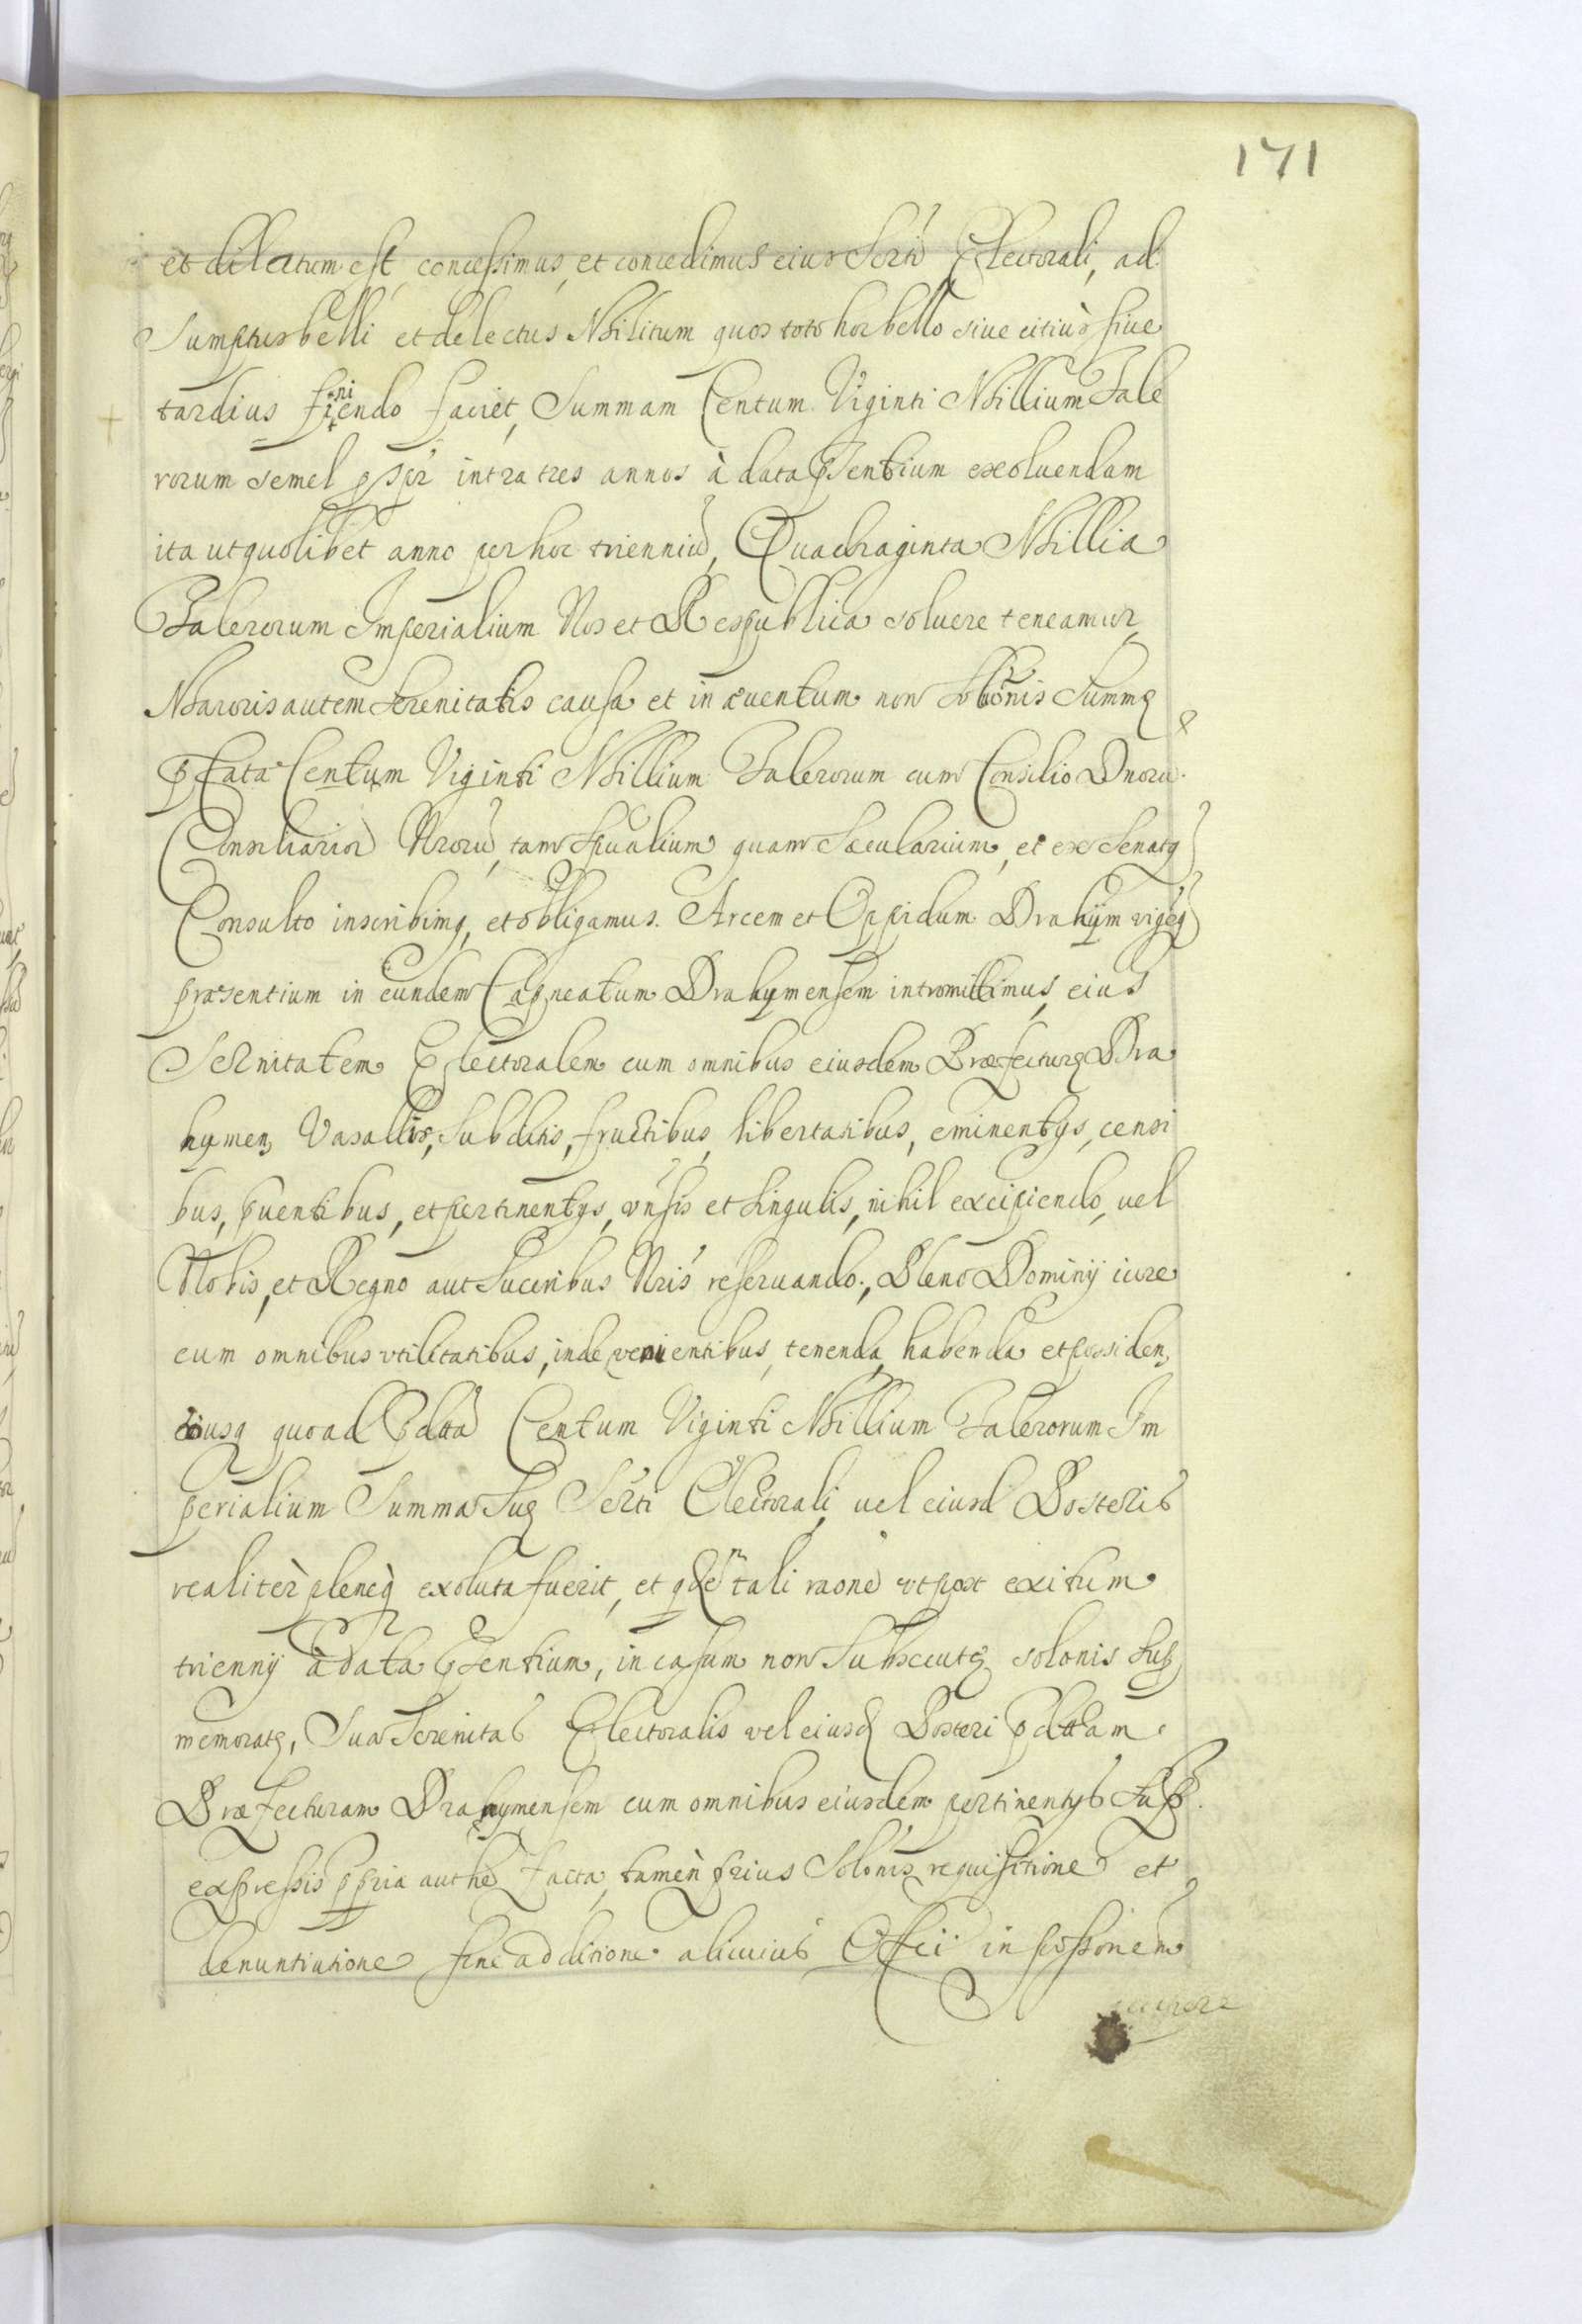 171
et dilectum est, concessimus, et concedimus eius Serti Electorali, ad
Sumptus belli et delectus Militum quos toto hoc bello siue citius siue
tardius finiendo faciet, Summam Centum Viginti Millium Tale
rorum semel intra tres annos à data pñsentium exoluendam
ita ut quolibet anno per hoc trienniũ, Quadraginta Millia
Talerorum Imperialium Nos et Respublica soluere teneamur,
Maioris autem Serenitatis causa et in euentum non solõnis Summę
pfata Centum Viginti Millium Talerorum cum Consilio Dnorũ
Consiliariorũ Nrorũ, tam Spualium quam Sæcularium, et ex Senatq
Consulto inscribimq, et obligamus. Arcem et Oppidum Drahÿm vigeq
præsentium in eundem Capneatum Drahymensem intromittimus, eius
Sernitatem Electoralem cum omnibus eiusdem Præfecturę Dra
hymen, Vasallis, Subditis, fructibus, libertatibus, eminentÿs, censi
bus, puentibus, et pertinentÿs, vnsis et singulis, nihil excipiendo, vel
Nobis, et Regno aut Succribus Nris reseruando, Pleno Dominÿ iure
cum omnibus vtilitatibus, inde venientibus, tenenda, habenda et possiden,
eousq quoad pdcta Centum Viginti Millium Talerorum Im
perialium Summa Suę Serti Electorali, vel eiusd Posteris
realitèr plenèq exoluta fuerit, et qdem tali raone vt post exitum
triennÿ à data pñsentium, in casum non Subsecutę solonis Sus
memoratę, Sua Serenitas Electoralis vel eiusd Posteri pdctam
Præfecturam Drahymensem cum omnibus eiusdem pertinentÿs Sup
expressis ppria authe facta, tamèn prius Solonis requisitione et
denuntiatione sine additione alicuius Offci in possionem